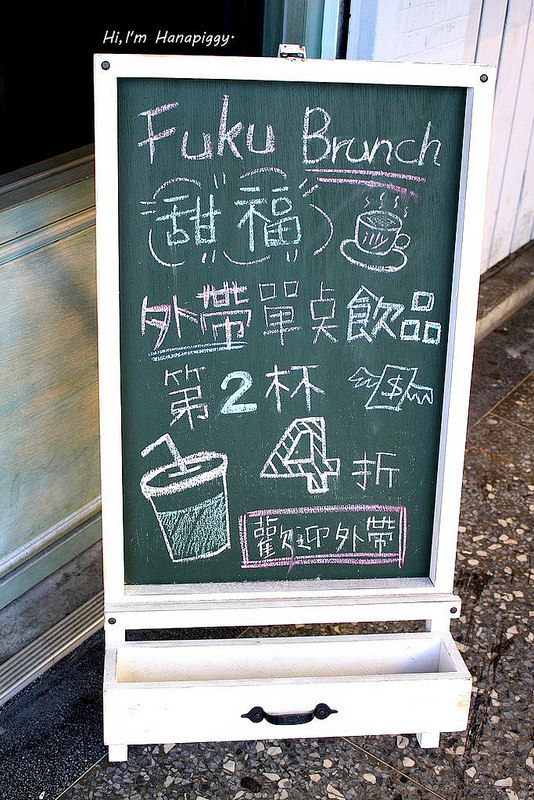 Hi,I'm Hanapiggy.
Fuku Brunch
甜福
外帶單点飲品
第2杯
$
4折
歡迎外帶